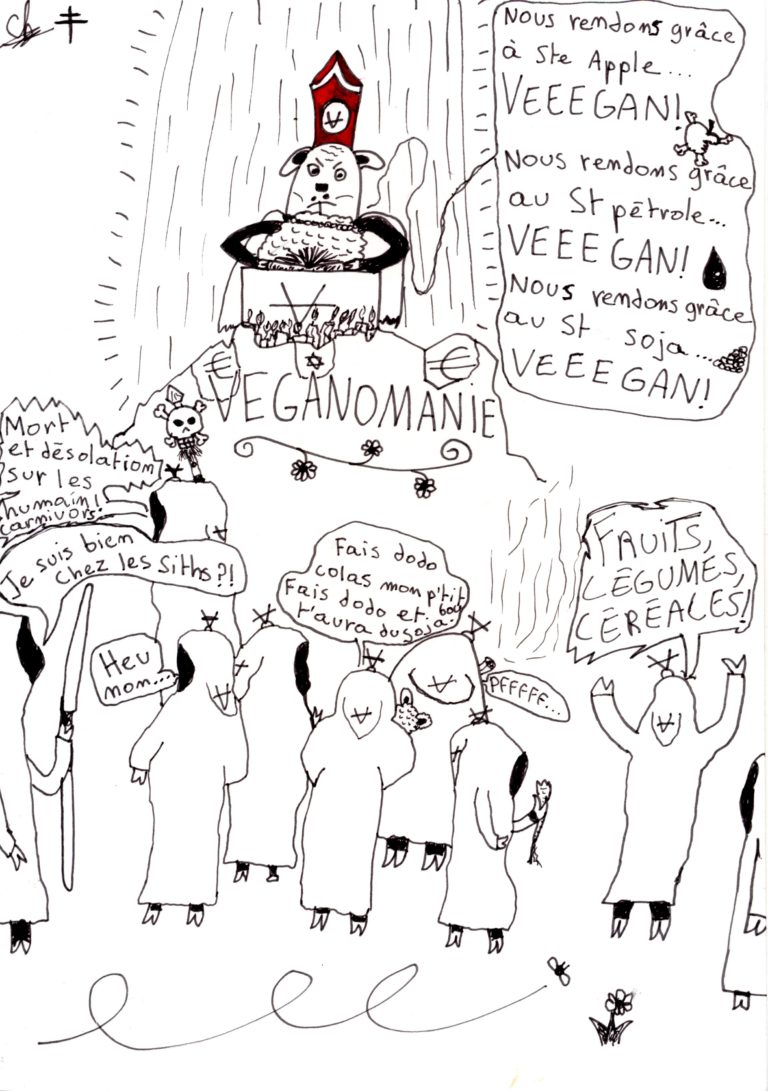 Ch
Nous rendons grâce
à Ste Apple...
VEEEGAN!
Nous rendons grâce
au St pétrole...
VEEEGAN!
Nous rendons grâce
au St soja...
VEEEGAN!
V
€ €
VEGANOMANIE
Mort
et désolation
sur les
humain!
carnivors!
Je suis bien
chez les Siths?!
Heu
mom...
Fais dodo
colas mon p'tit
bou
Fais dodo et
t'aura du soja!
PFFFFF...
FRUITS,
LÉGUMES,
CÉRÉALES!